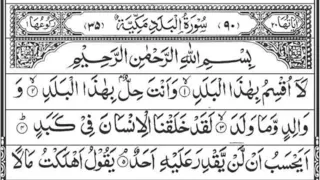 اٰیَاتُهَا ۲۰ (۹۰) سُوْرَةُ الْبَلَدِ مَكِّيَّةٌ (۳۵) رُكُوْعُهَا ۱
بِسْمِ اللّٰهِ الرَّحْمٰنِ الرَّحِيْمِ
لَاۤ اُقْسِمُ بِهٰذَا الْبَلَدِ ۱ وَاَنْتَ حِلٌّۢ بِهٰذَا الْبَلَدِ ۲ وَ
وَالِدٍ وَّمَا وَلَدَ ۳ لَقَدْ خَلَقْنَا الْاِنْسَانَ فِيْ كَبَدٍ ۴
اَيَحْسَبُ اَنْ لَّنْ يَّقْدِرَ عَلَيْهِ اَحَدٌ ۵ يَقُوْلُ اَهْلَكْتُ مَالًا